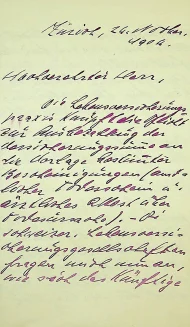 Zürich, 26. Novbr.
1902.
Hochverehrter Herr,
Die Lebensversicherungs
praxis knüpft die Pflicht
zur Ausbezahlung der
Versicherungssumme an
die Vorlage bestimmter
Bescheinigungen (amt-
licher Todesschein u.
ärztliches Attest über
Todesursache). - Di
schweizer. Lebensversi-
cherungsgesellschaften
fragen mich nun an,
wie sich das künftige